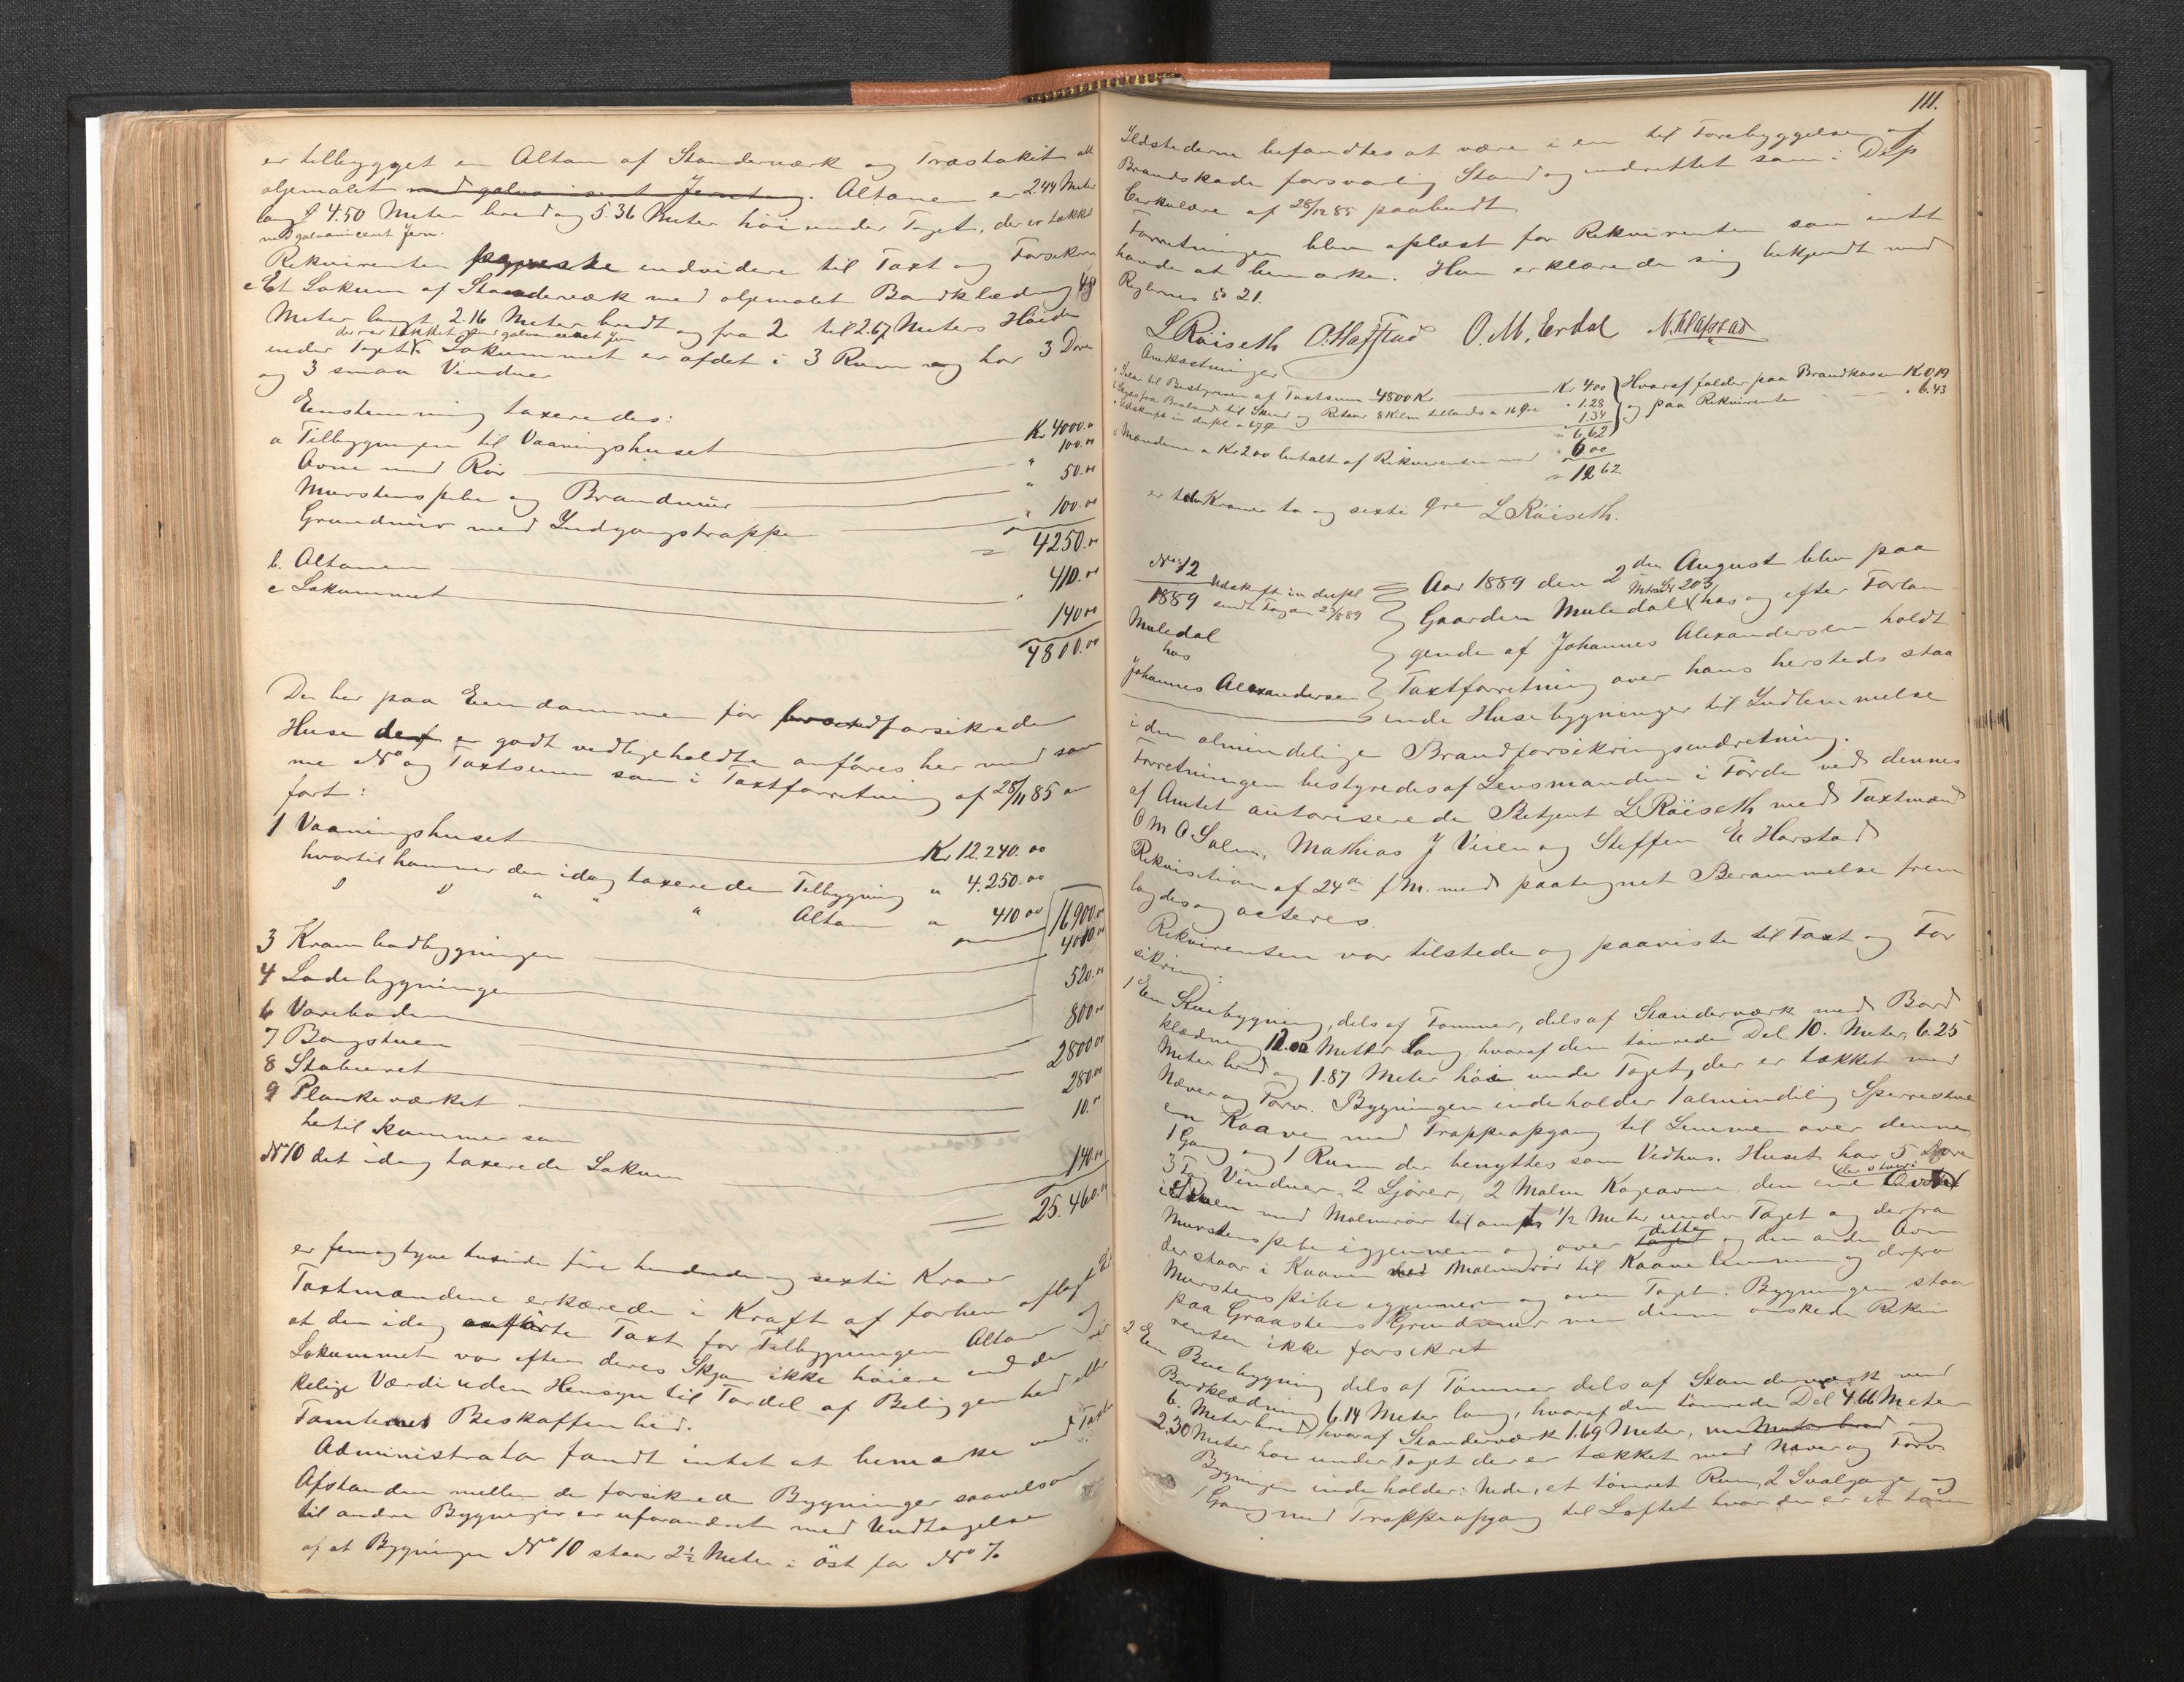 er tilbygget en Altan af Standerværk og Træstakit alt
oljemalet med galvaniseret Jerntag. Altanen er 2.44 Meter
lang 4.50 Meter bred og 5.36 Meter höi under Taget, der er tækket
med galvaniceret Jern.
Rekvirenten endvidere til Taxt og Forsikring
c Et Lokum af Standerværk med oljemalet Bordklædning
Meter langt, 2.16 Meter bredt og fra 2 til 2.67 Meters Höide
der er tækket med galvaniceret Jern
under Taget. Lokummet er afdelt i 3 Rum og har 3 Döre
og 3 smaa Vinduer
Eenstemmig taxeredes:
a Tilbygningen til Vaaningshuset Kr 4000.00
Ovne med Rör " 100.00
Murstenspibe og Brandmur " 50.00
Grundmur med Indgangstrappe " 100.00
= 4250.00
b. Altanen 410.00
c Lokummet 140.00
4800.00
De her paa Eiendommen för forsikrede
Huse er godt vedligeholdte anföres her med sam
me No og Taxtsum som i Taxtforretning af 28/11 85 an
fört:
1 Vaaningshuset Kr 12.240.00
hvortil kommer den idag taxerede Tilbygning " 4.250.00
" " " " " Altan " 410.00 16900.00
3 Krambodbygningen 4010.00
4 Ladebygningen 520.00
6 Vareboden 800.00
7 Borgstuen 2800.00
8 Stabburet 280.00
9 Plankeværket 10.00
hertil kommer som
No 10 det idag taxerede Lokum 140.00
= 25.460.00
er femogtyve tusinde fire hundrede og sexti Kroner
Taxtmændene erklærede i Kraft af forhen aflagt Ed
at den idag anförte Taxt for Tilbygningen Altan og
Lokummet var efter deres Skjön ikke höiere end den vir
kelige Værdi uden Hensyn til Fordel af Beliggenhed eller
Tomternes Beskaffenhed.
Administrator fandt intet at bemærke ved Taxten
Afstanden mellem de forsikrede Bygninger saavelsom
til andre Bygninger er uforandret med Undtagelse
af at Bygningen No 10 staar 2½ Meter i öst for No 7.
111.
Ildstederne befandtes at være i en til Forebyggelse af
Brandskade forsvarlig Stand og indrettet som i Dep
Cirkulære af 28/12 85 paabudt
Forretningen blev oplæst for Rekvirenten som intet
havde at bemærke. Han erklærede sig bekjendt med
Reglernes § 21.
L Röiseth O. Hafstad O. M. Erdal N. Klafstad
Omkostninger
Salær til Bestyreren af Taxtsum 4800 Kr Kr 4.00 } Hvoraf falder paa Brandkassen Kr 0.19
Skyds fra Bruland til Skind og Retour 8 Kilm tillands a 16 Öre " 1.28 } og paa Rekvirenten " 6.43
Udskrift in dupl a 67 Ö 1.34
= 6.62
Mændene a Kr 2.00 betalt af Rekvirenten med " 6.00
= 12.62
er tolv Kroner to og sexti Öre L Röiseth.
No 12 Aar 1889 den 2den August blev paa
1889 Udskrift in dupl Matr Lb 203
sendt Fogden 2/8 89 Gaarden Muledal hos og efter Forlan
Muledal gende af Johannes Alexandersen holdt
hos Taxtforretning over hans hersteds staa
Johannes Alexandersen ende Husebygninger til Indlemmelse
i den almindelige Brandforsikringsindretning.
Forretningen bestyredes af Lensmanden i Förde ved dennes
af Amtet autoriserede Betjent L Röiseth med Taxtmænd
O M O Solem, Mathias J Vieu og Steffen E Harstad
Rekvisition af 24de f M. med paategnet Berammelse frem
lagdes og acteres
Rekvirenten var tilstede og paaviste til Taxt og For
sikring:
1 En Stuebygning, dels af Tömmer, dels af Standerværk med Bord
klædning 12.00 Meter lang, hvoraf den tömrede Del 10. Meter, 6.25
Meter bred og 1.87 Meter höi under Taget, der er tækket med
Næver og Törv. Bygningen indeholder 1 almindelig Sperrestue
en Kaave med Trappeopgang til Lemmen over denne
1 Gang og 1 Rum der benyttes som Vedhus. Huset har 5 Döre
3 Fag Vinduer, 2 Ljorer, 2 Malm Kogeovne, den ene der staar
i Stuen med Malmrör til omtr ½ Meter under Taget og derfra
Murstenspibe igjennem og over dette og den anden Ovn
der staar i Kaaven med Malmrör til Kaavelemmen og derfra
Murstenspibe igjennem og over Taget. Bygningen staar
paa Graastens Grundmur men denne önskede Rekvi
renten ikke forsikret
2 En Buebygning dels af Tömmer dels af Standerværk med
Bordklædning 6.14 Meter lang, hvoraf den tömrede Del 4.66 Meter
6. Meter bred, hvoraf Standerværk 1.69 Meter, Meter bred og
2.30 Meter höi under Taget der er tækket med Næver og Törv
Bygningen indeholder: Nede, et tömret Rum, 2 Svalgange og
1 Gang med Trappeopgang til Loftet hvor der er et töm